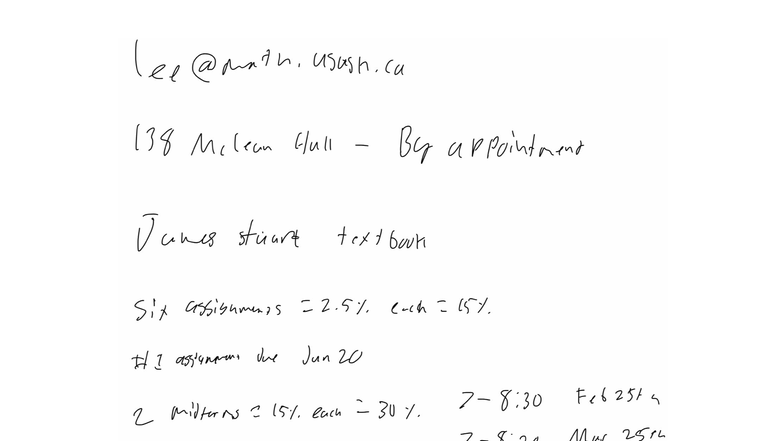 lee@math.usask.ca
138 McLean Hall - By appointment
James Stuart textbook
Six assignments = 2.5% each = 15%.
#1 assignment due Jan 20
2 midterms = 15% each = 30%. 7-8:30 Feb 25th
7-8:30 Mar 25th